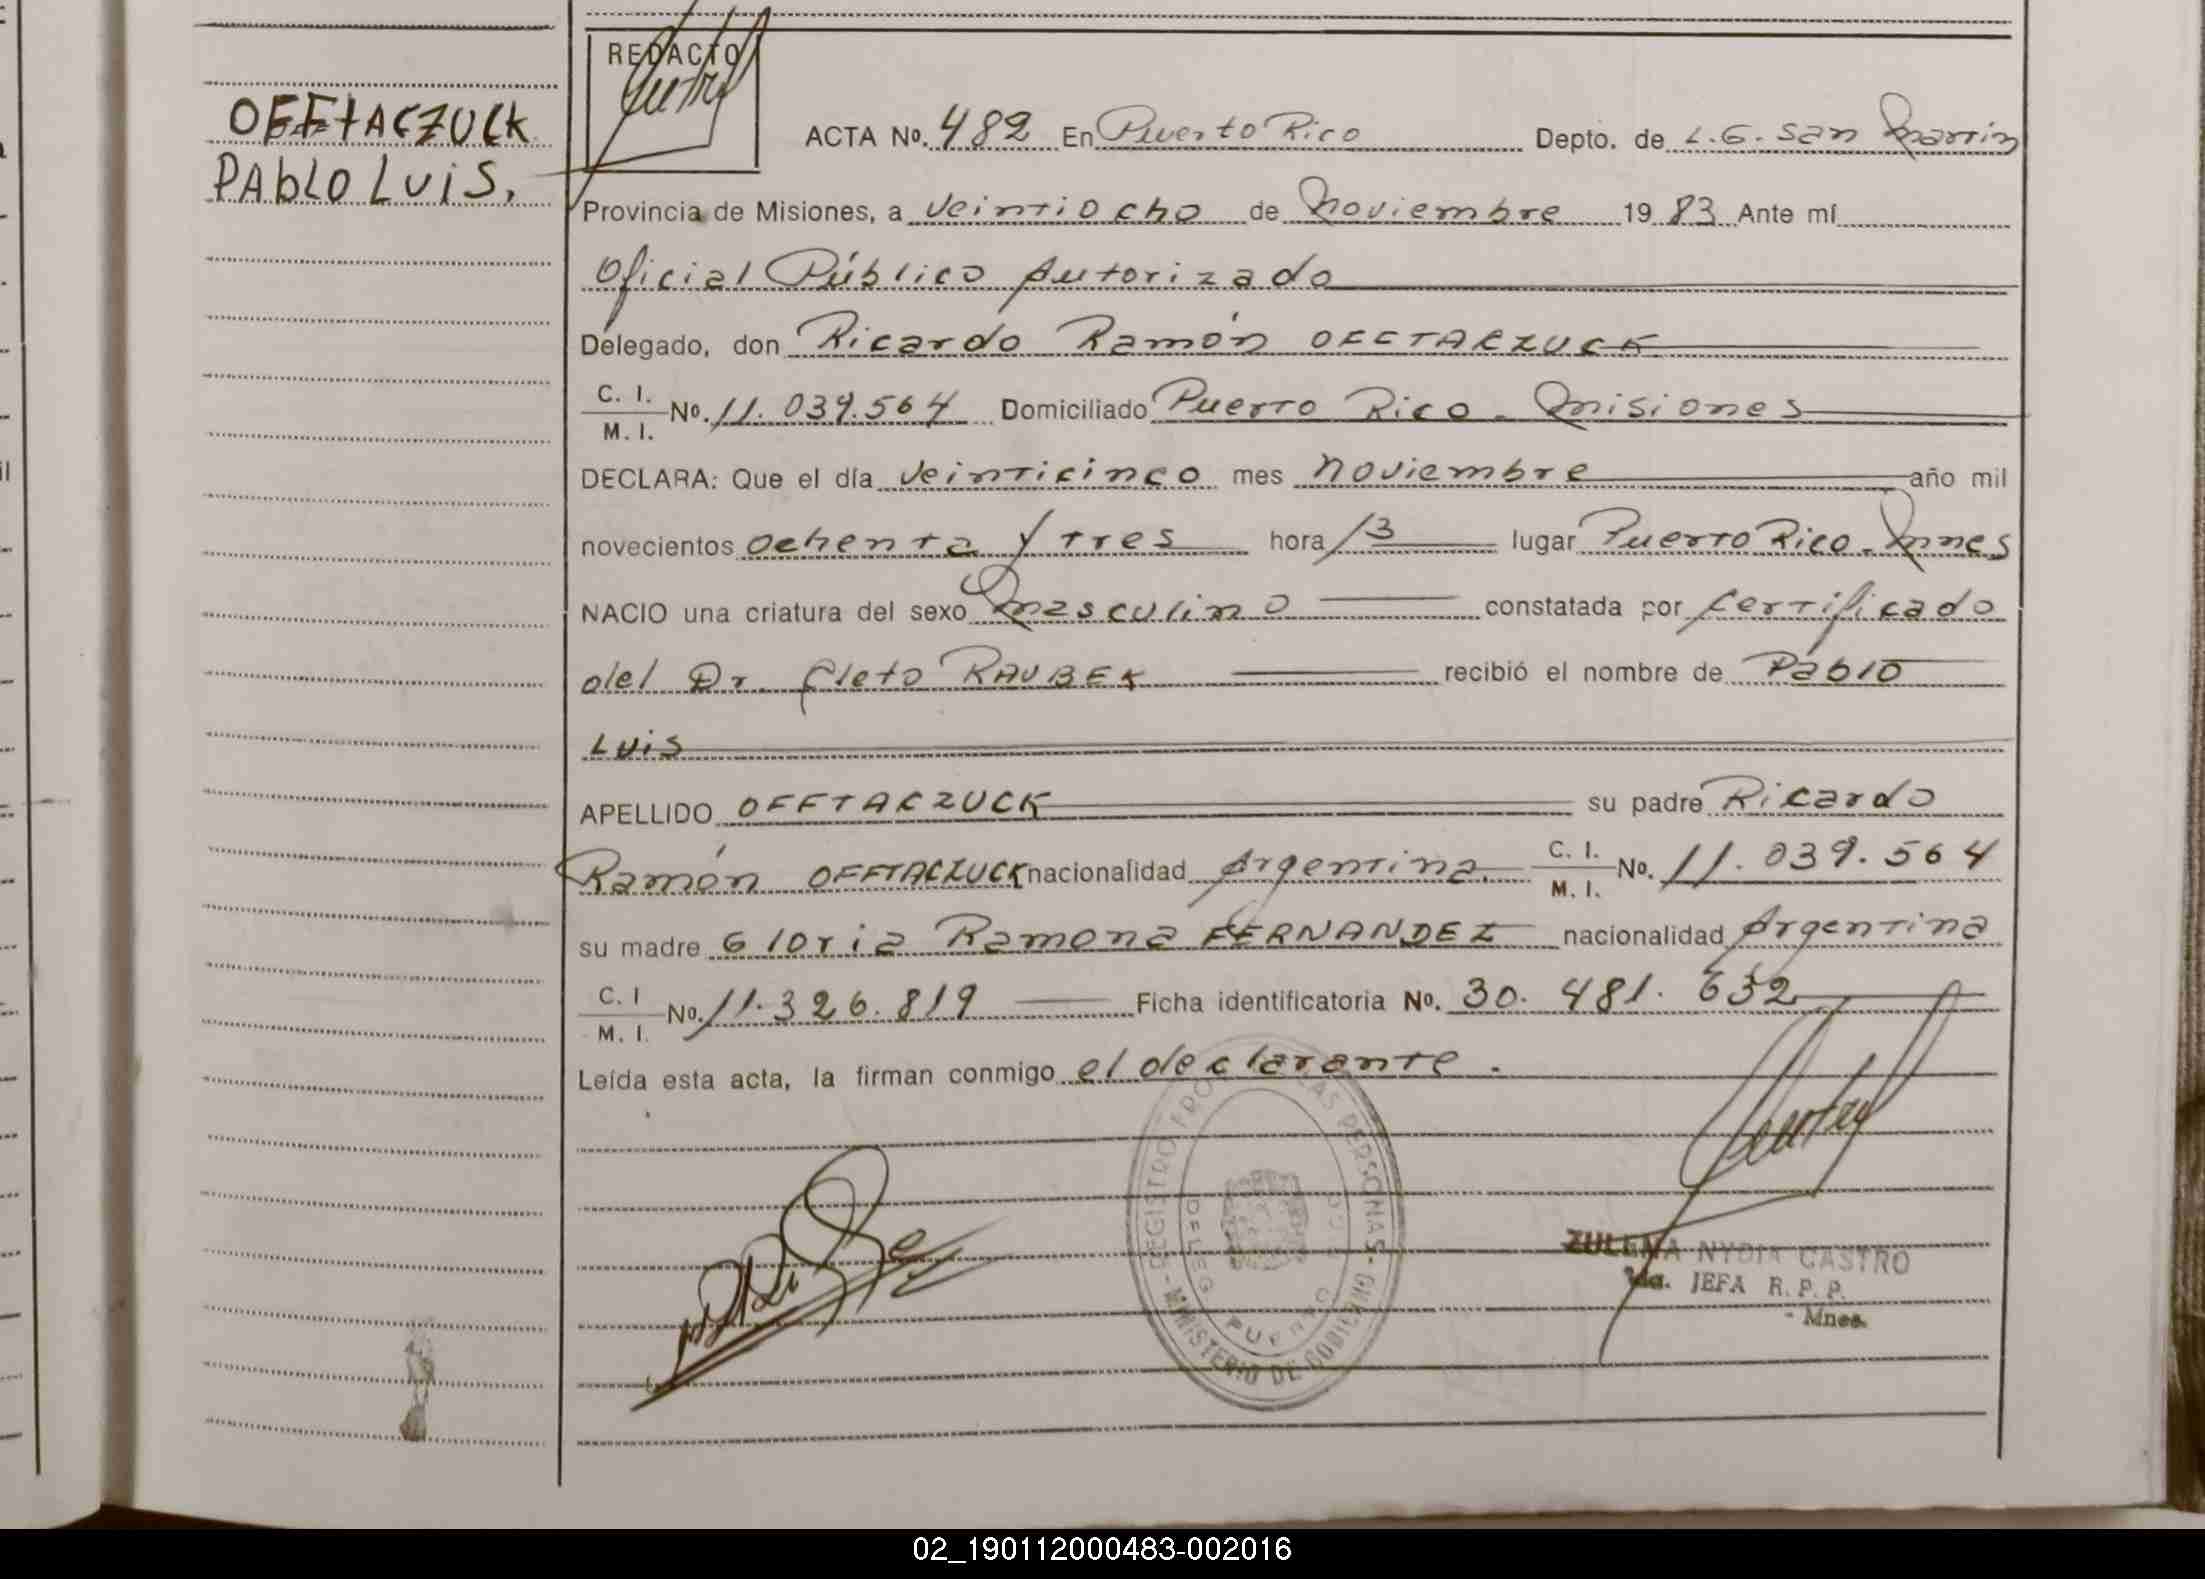 OFFTACZUCK
PAbLO LUIS.
REDACTO
ACTA No. 482 En Puerto Rico Depto. de L.G. San Martín
Provincia de Misiones, a veintiocho de Noviembre 1983 Ante mí
Oficial Público Autorizado
Delegado, don Ricardo Ramón OFFTACZUCK
C. I.
M. I. No. 11.039.564 Domiciliado Puerto Rico - Misiones
DECLARA: Que el día veinticinco mes noviembre año mil
novecientos ochenta y tres hora 13 lugar Puerto Rico - Mnes
NACIO una criatura del sexo Masculino constatada por Certificado
del Dr. Cleto RAUBEK recibió el nombre de Pablo
Luis
APELLIDO OFFTACZUCK su padre Ricardo
Ramón OFFTACZUCK nacionalidad Argentina. C. I.
M. I. No. 11.039.564
su madre Gloria Ramona FERNANDEZ nacionalidad Argentina
C. I
M. I. No. 11.326.819 Ficha identificatoria No. 30.481.632
Leída esta acta, la firman conmigo el declarante.
REGISTRO LAS PERSONAS - MINISTERIO DE GOBIERNO
DELEG PUERTO
ZULEMA NYDIA CASTRO
JEFA R. P. P.
- Mnes.
02_190112000483-002016